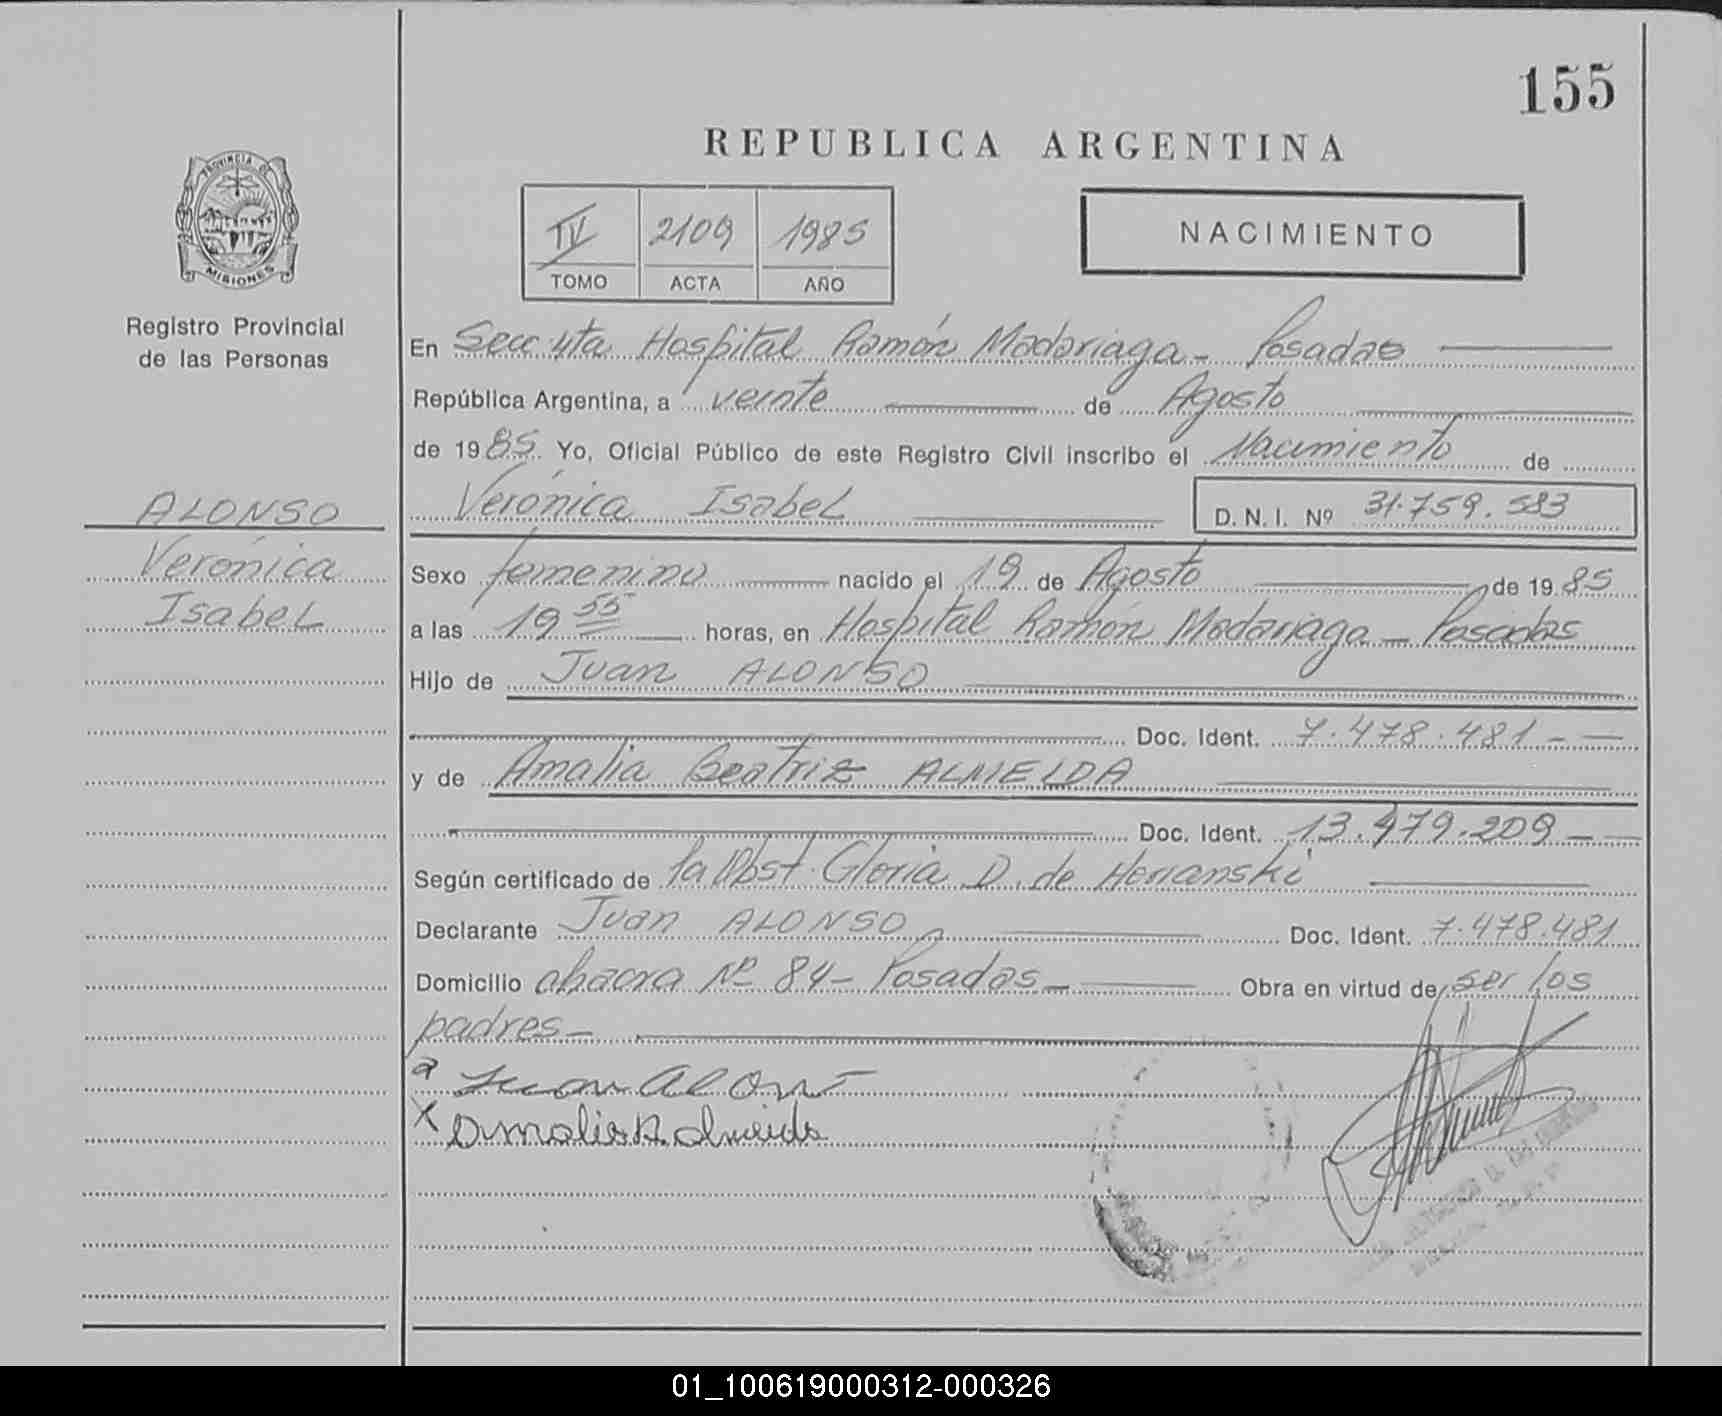 155
REPUBLICA ARGENTINA
PROVINCIA DE
MISIONES
IV 2109 1985
TOMO ACTA AÑO
NACIMIENTO
Registro Provincial
de las Personas
ALONSO
Verónica
Isabel
En Secc 4ta Hospital Ramón Madariaga - Posadas
República Argentina, a veinte de Agosto
de 1985. Yo, Oficial Público de este Registro Civil inscribo el Nacimiento de
Verónica Isabel D. N. I. Nº 31.759.583
Sexo femenino nacido el 19 de Agosto de 1985
a las 19 55 horas, en Hospital Ramón Madariaga - Posadas
Hijo de Juan ALONSO
Doc. Ident. 7.478.481 - -
y de Amalia Beatriz ALMEIDA
Doc. Ident. 13.979.209 - -
Según certificado de la Obst. Gloria D. de
Declarante Juan ALONSO Doc. Ident. 7.478.481
Domicilio chacra Nº 84 - Posadas - Obra en virtud de ser los
padres -
Juan Alons
X Amalia B. Almeida
01_100619000312-000326